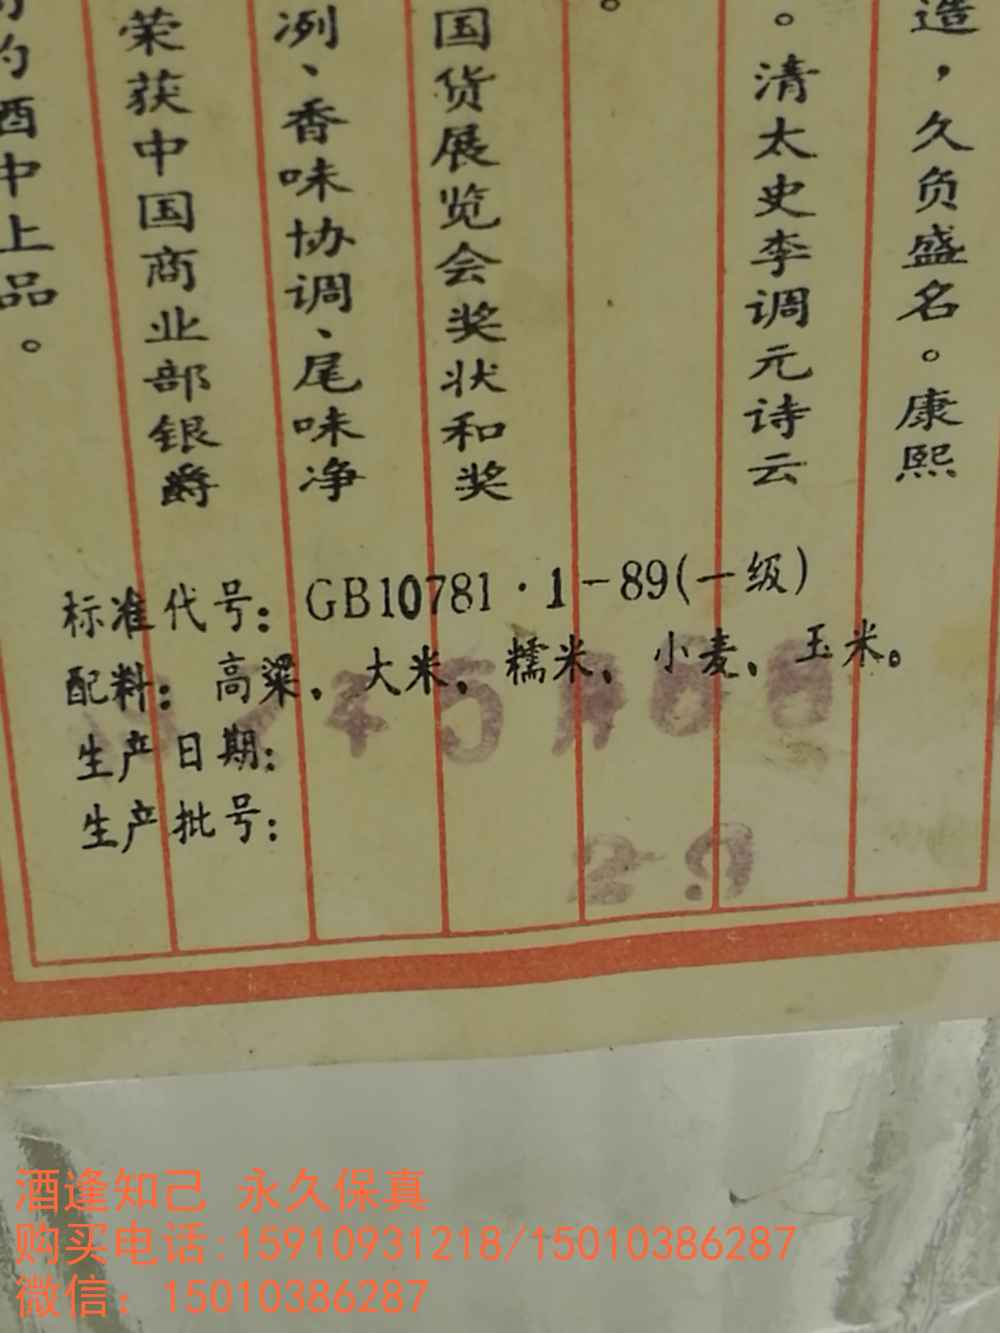 造，久负盛名。康熙
。清太史李调元诗云
。
国货展览会奖状和奖
冽、香味协调、尾味净
荣获中国商业部银爵
的酒中上品。
标准代号：GB10781·1-89(一级)
配料：高粱、大米、糯米、小麦、玉米。
生产日期：
生产批号：
29
酒逢知己 永久保真
购买电话:15910931218/15010386287
微信：15010386287